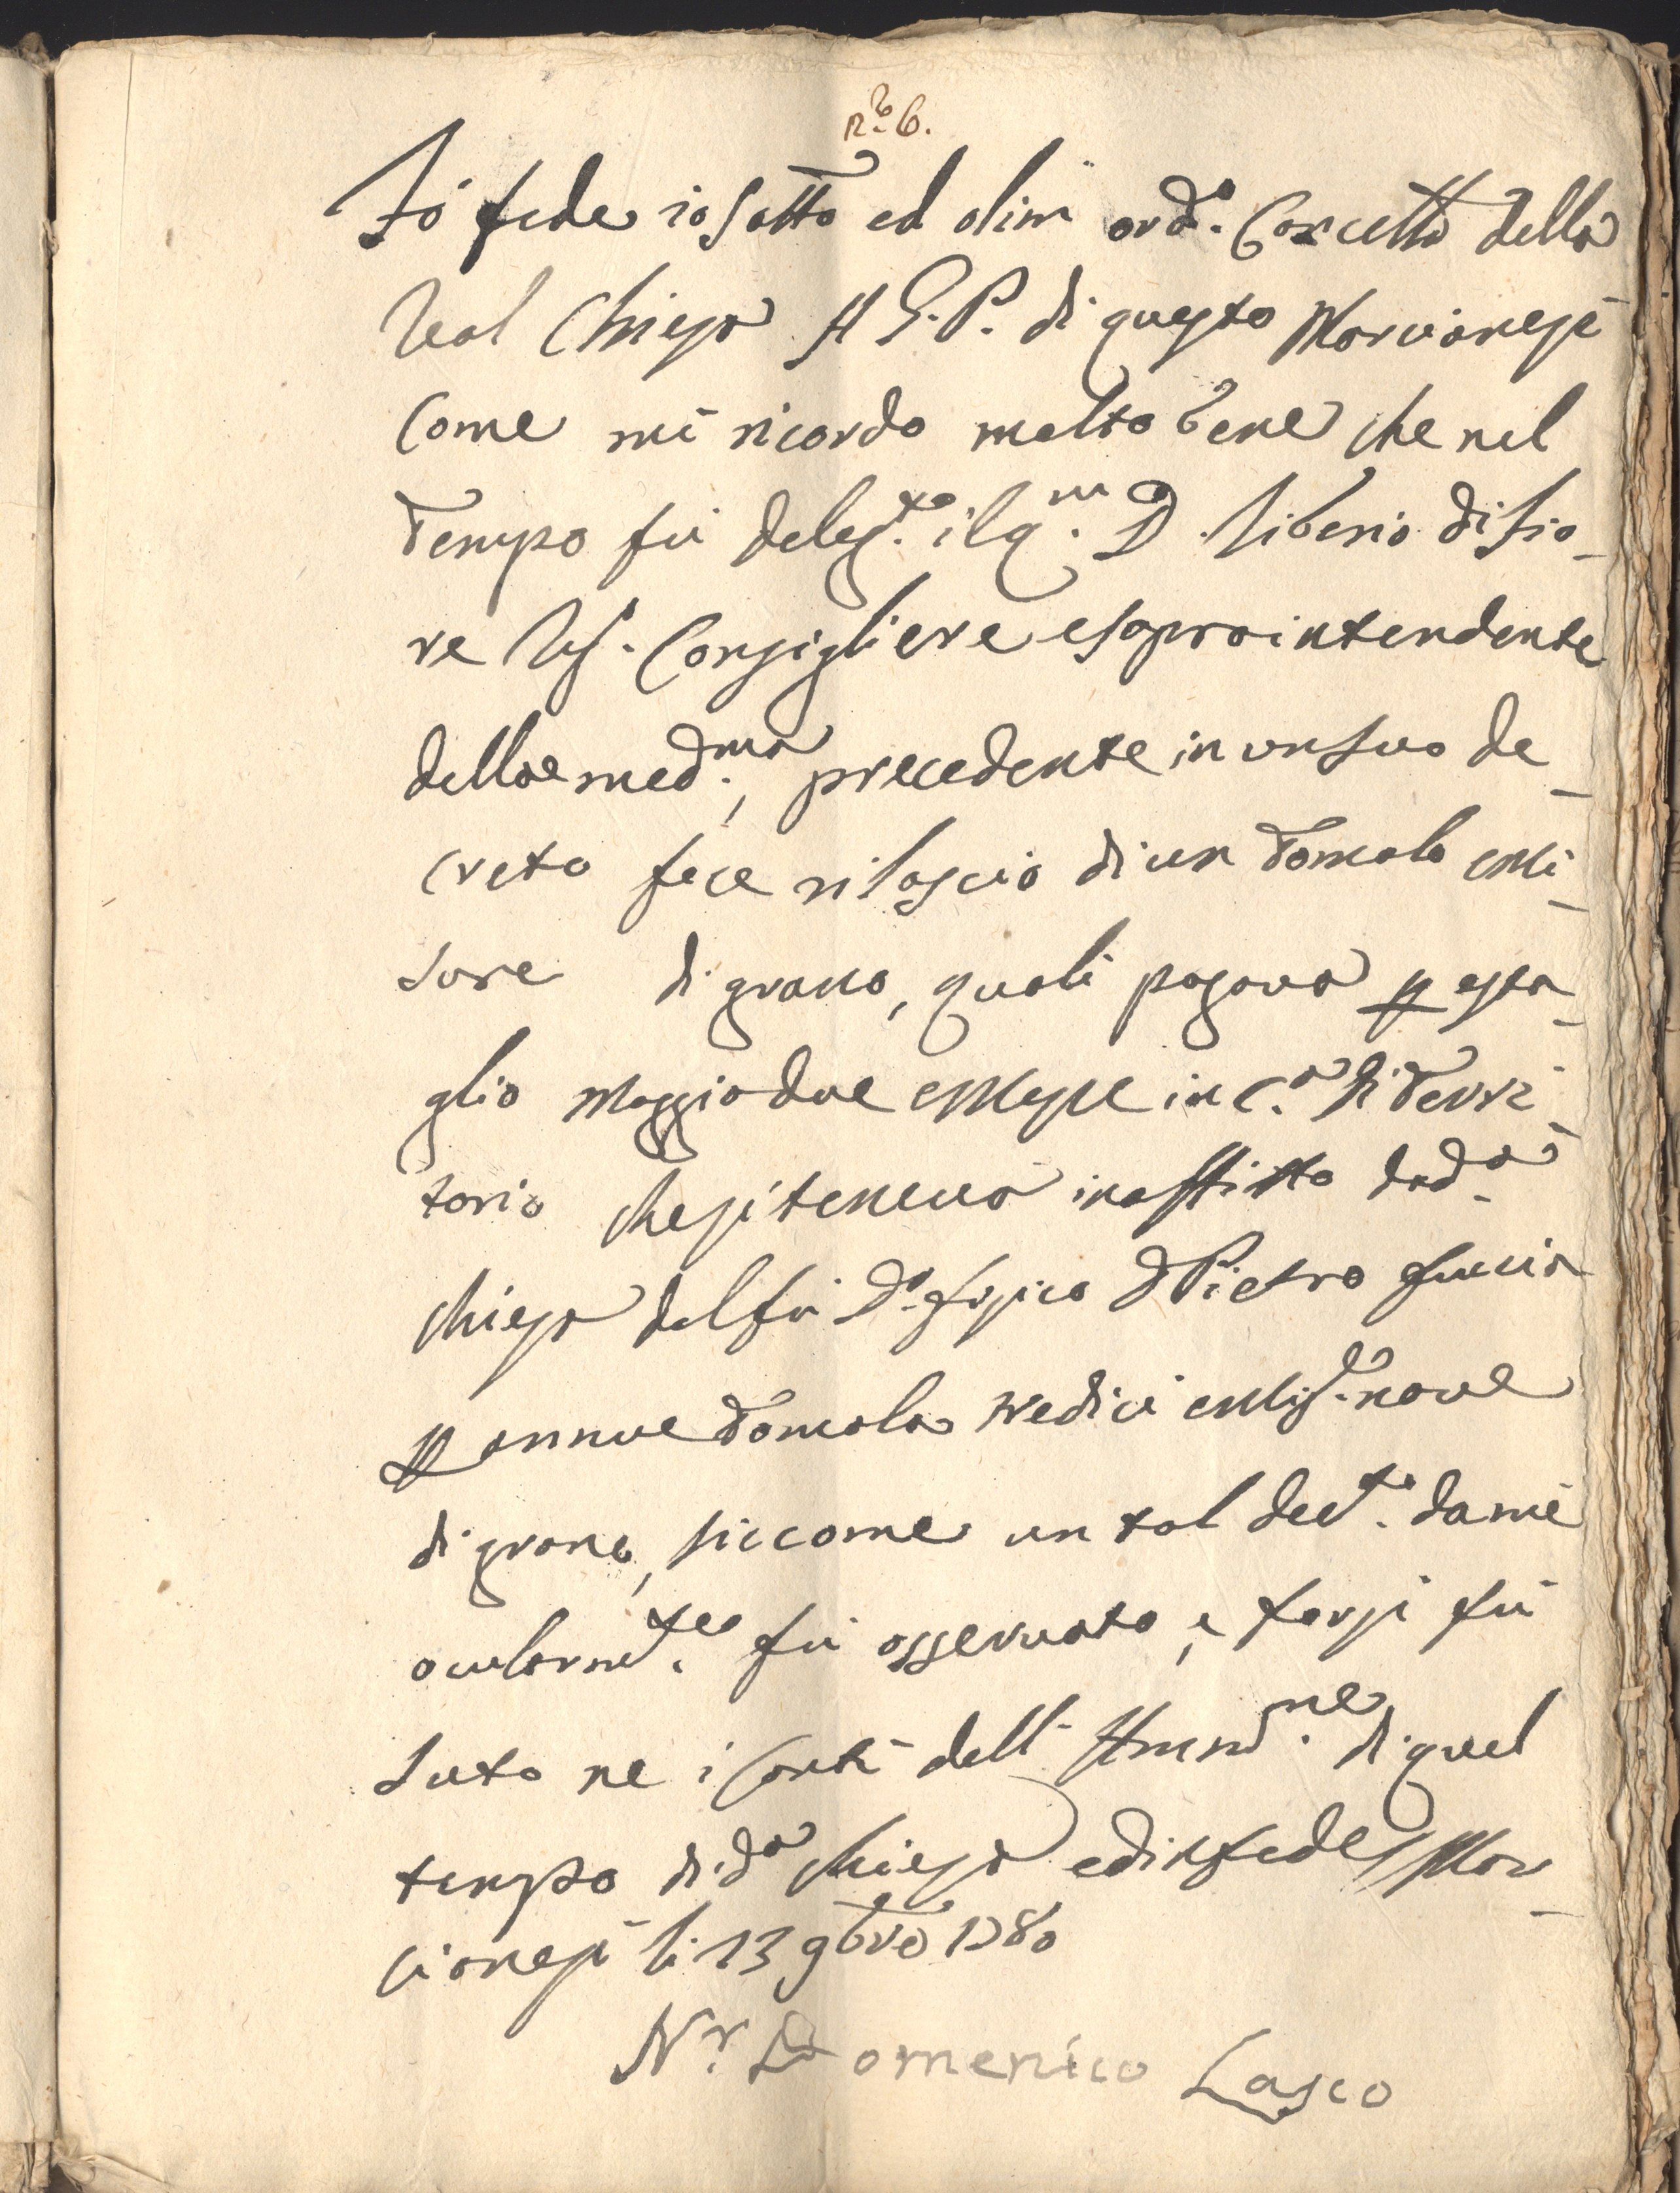 n.º 6.
Fò fede io sotto ed olim ord.º Cancell.º della
Real Chiesa A G. P. di questo Marcianisi
Come mi ricordo molto bene che nel
tempo fù deleg.to il q.m D. Liberio di Fio-
re Reg.º Consigliere e sopraintendente
della med.ma, precedente in un suo de-
creto fece rilascio di un tomolo e Mi-
sure di grano, quali pagava per esta-
glio Moggia due e Mezze in c.ª di Terri
torio che si teneva in affitto da d.ª
Chiesa dal fù D.r fisico D Pietro Fuccia
per annue tomola tredici e Mis.e nove
di grano, siccome un tal dec.to da mè
ocularm.te fù osservato, e forsi fù
Sito ne i Conti dell' Amm.ne di quel
tempo di d.ª Chiesa ed in fede Mar-
cianisi li 13 9bre 1780
N.r Domenico Lasco